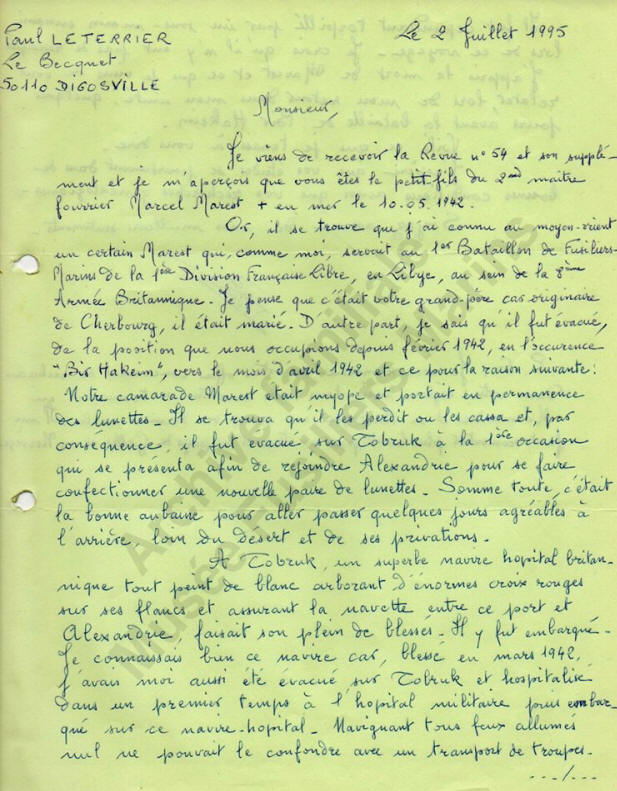 Paul LETERRIER
Le Becquet
50110 DIGOSVILLE
Le 2 Juillet 1995
Monsieur,
Je viens de recevoir la Revue n° 54 et son supplé-
ment et je m'aperçois que vous êtes le petit-fils du 2nd maitre
fourrier Marcel Marest + en mer le 10.05.1942.
Or, il se trouve que j'ai connu au moyen-orient
un certain Marest qui, comme moi, servait au 1er Bataillon de Fusiliers-
Marins de la 1ère Division Française Libre, en Libye, au sein de la 8ème
Armée Britannique. Je pense que c'était votre grand-père car originaire
de Cherbourg, il était marié. D'autre part, je sais qu'il fut évacué,
de la position que nous occupions depuis février 1942, en l'occurence
"Bir Hakeim", vers le mois d'avril 1942 et ce pour la raison suivante:
Notre camarade Marest était myope et portait en permanence
des lunettes. Il se trouva qu'il les perdit ou les cassa et, par
conséquence, il fut évacué sur Tobruk à la 1ère occasion
qui se présenta afin de rejoindre Alexandrie pour se faire
confectionner une nouvelle paire de lunettes. Somme toute, c'était
la bonne aubaine pour aller passer quelques jours agréables à
l'arrière, loin du désert et de ses privations.
A Tobruk, un superbe navire hopital britan-
nique tout peint de blanc arborant d'énormes croix rouges
sur ses flancs et assurant la navette entre ce port et
Alexandrie, faisait son plein de blessés. Il y fut embarqué.
Je connaissais bien ce navire car, blessé en mars 1942,
j'avais moi aussi été évacué sur Tobruk et hospitalisé
dans un premier temps à l'hopital militaire puis embar-
qué sur ce navire-hopital. Navignant tous feux allumés
nul ne pouvait le confondre avec un transport de troupes.
---/---